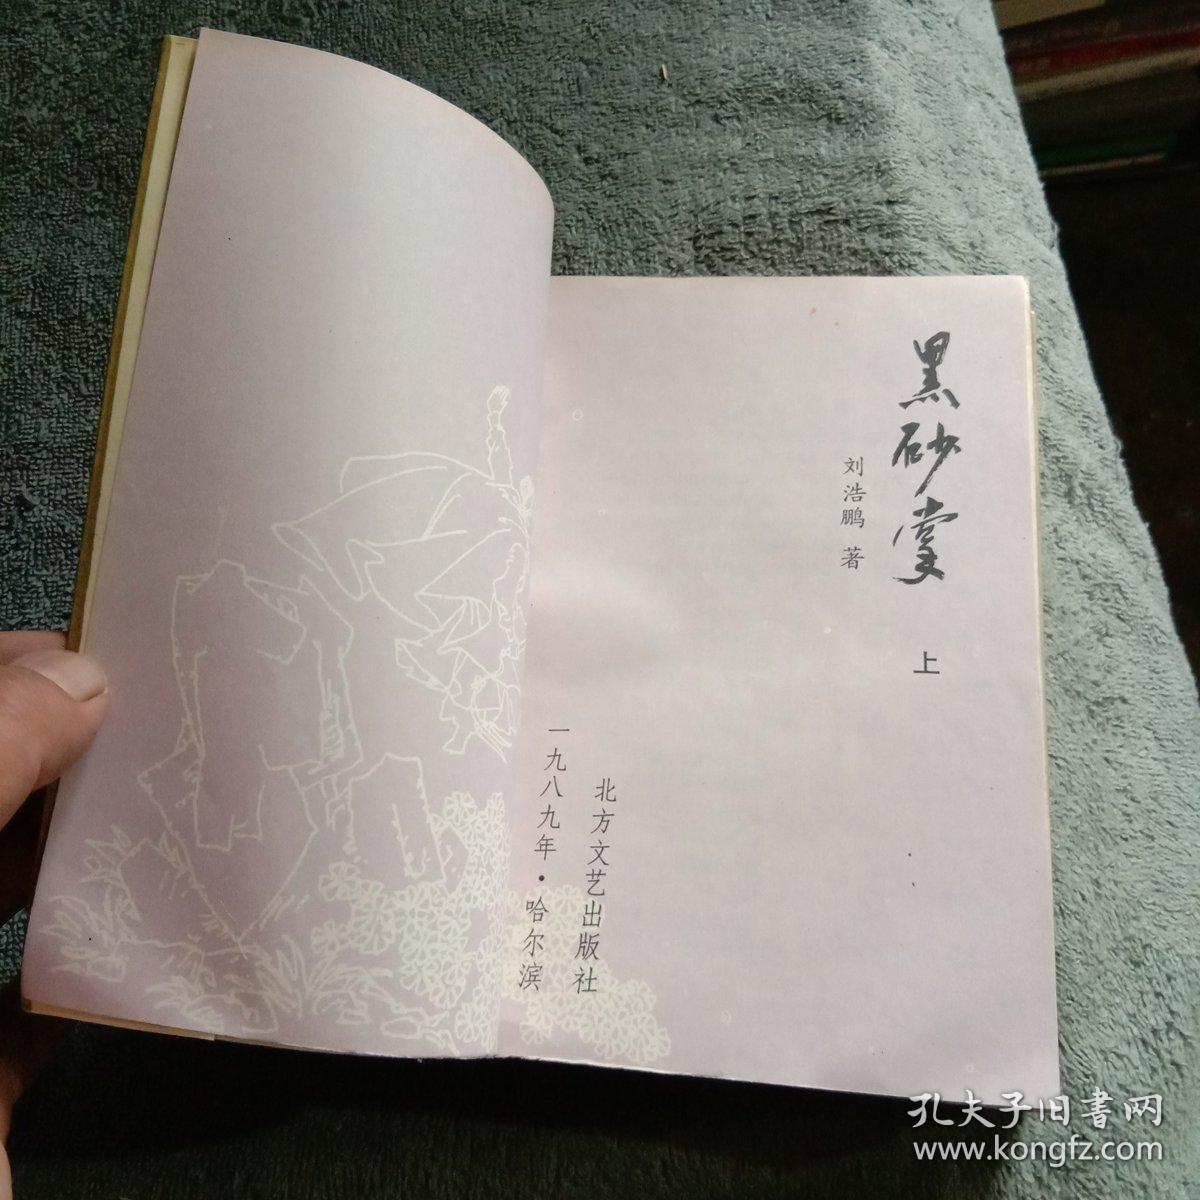 黑砂掌
上
刘浩鹏 著
北方文艺出版社
一九八九年·哈尔滨
孔夫子旧書网
www.kongfz.com